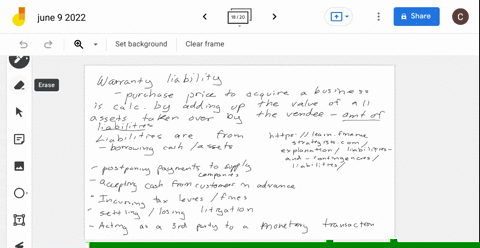 june 9 2022
18 / 20
Share
C
Set background
Clear frame
Erase
Warranty liability
- purchase price to acquire a business
is calc. by adding up the value of all
assets taken over by the vendee - amt of
liabilities
Liabilities are from
- borrowing cash /assets
https://learn.finance
strategists.com/
explanation/ liabilities-
and-contingencies/
liabilities/
- postponing payments to supply
companies
- accepting cash from customers in advance
- Incurring tax levies / fines
- settling / losing litigation
- Acting as a 3rd party to a monetary transaction